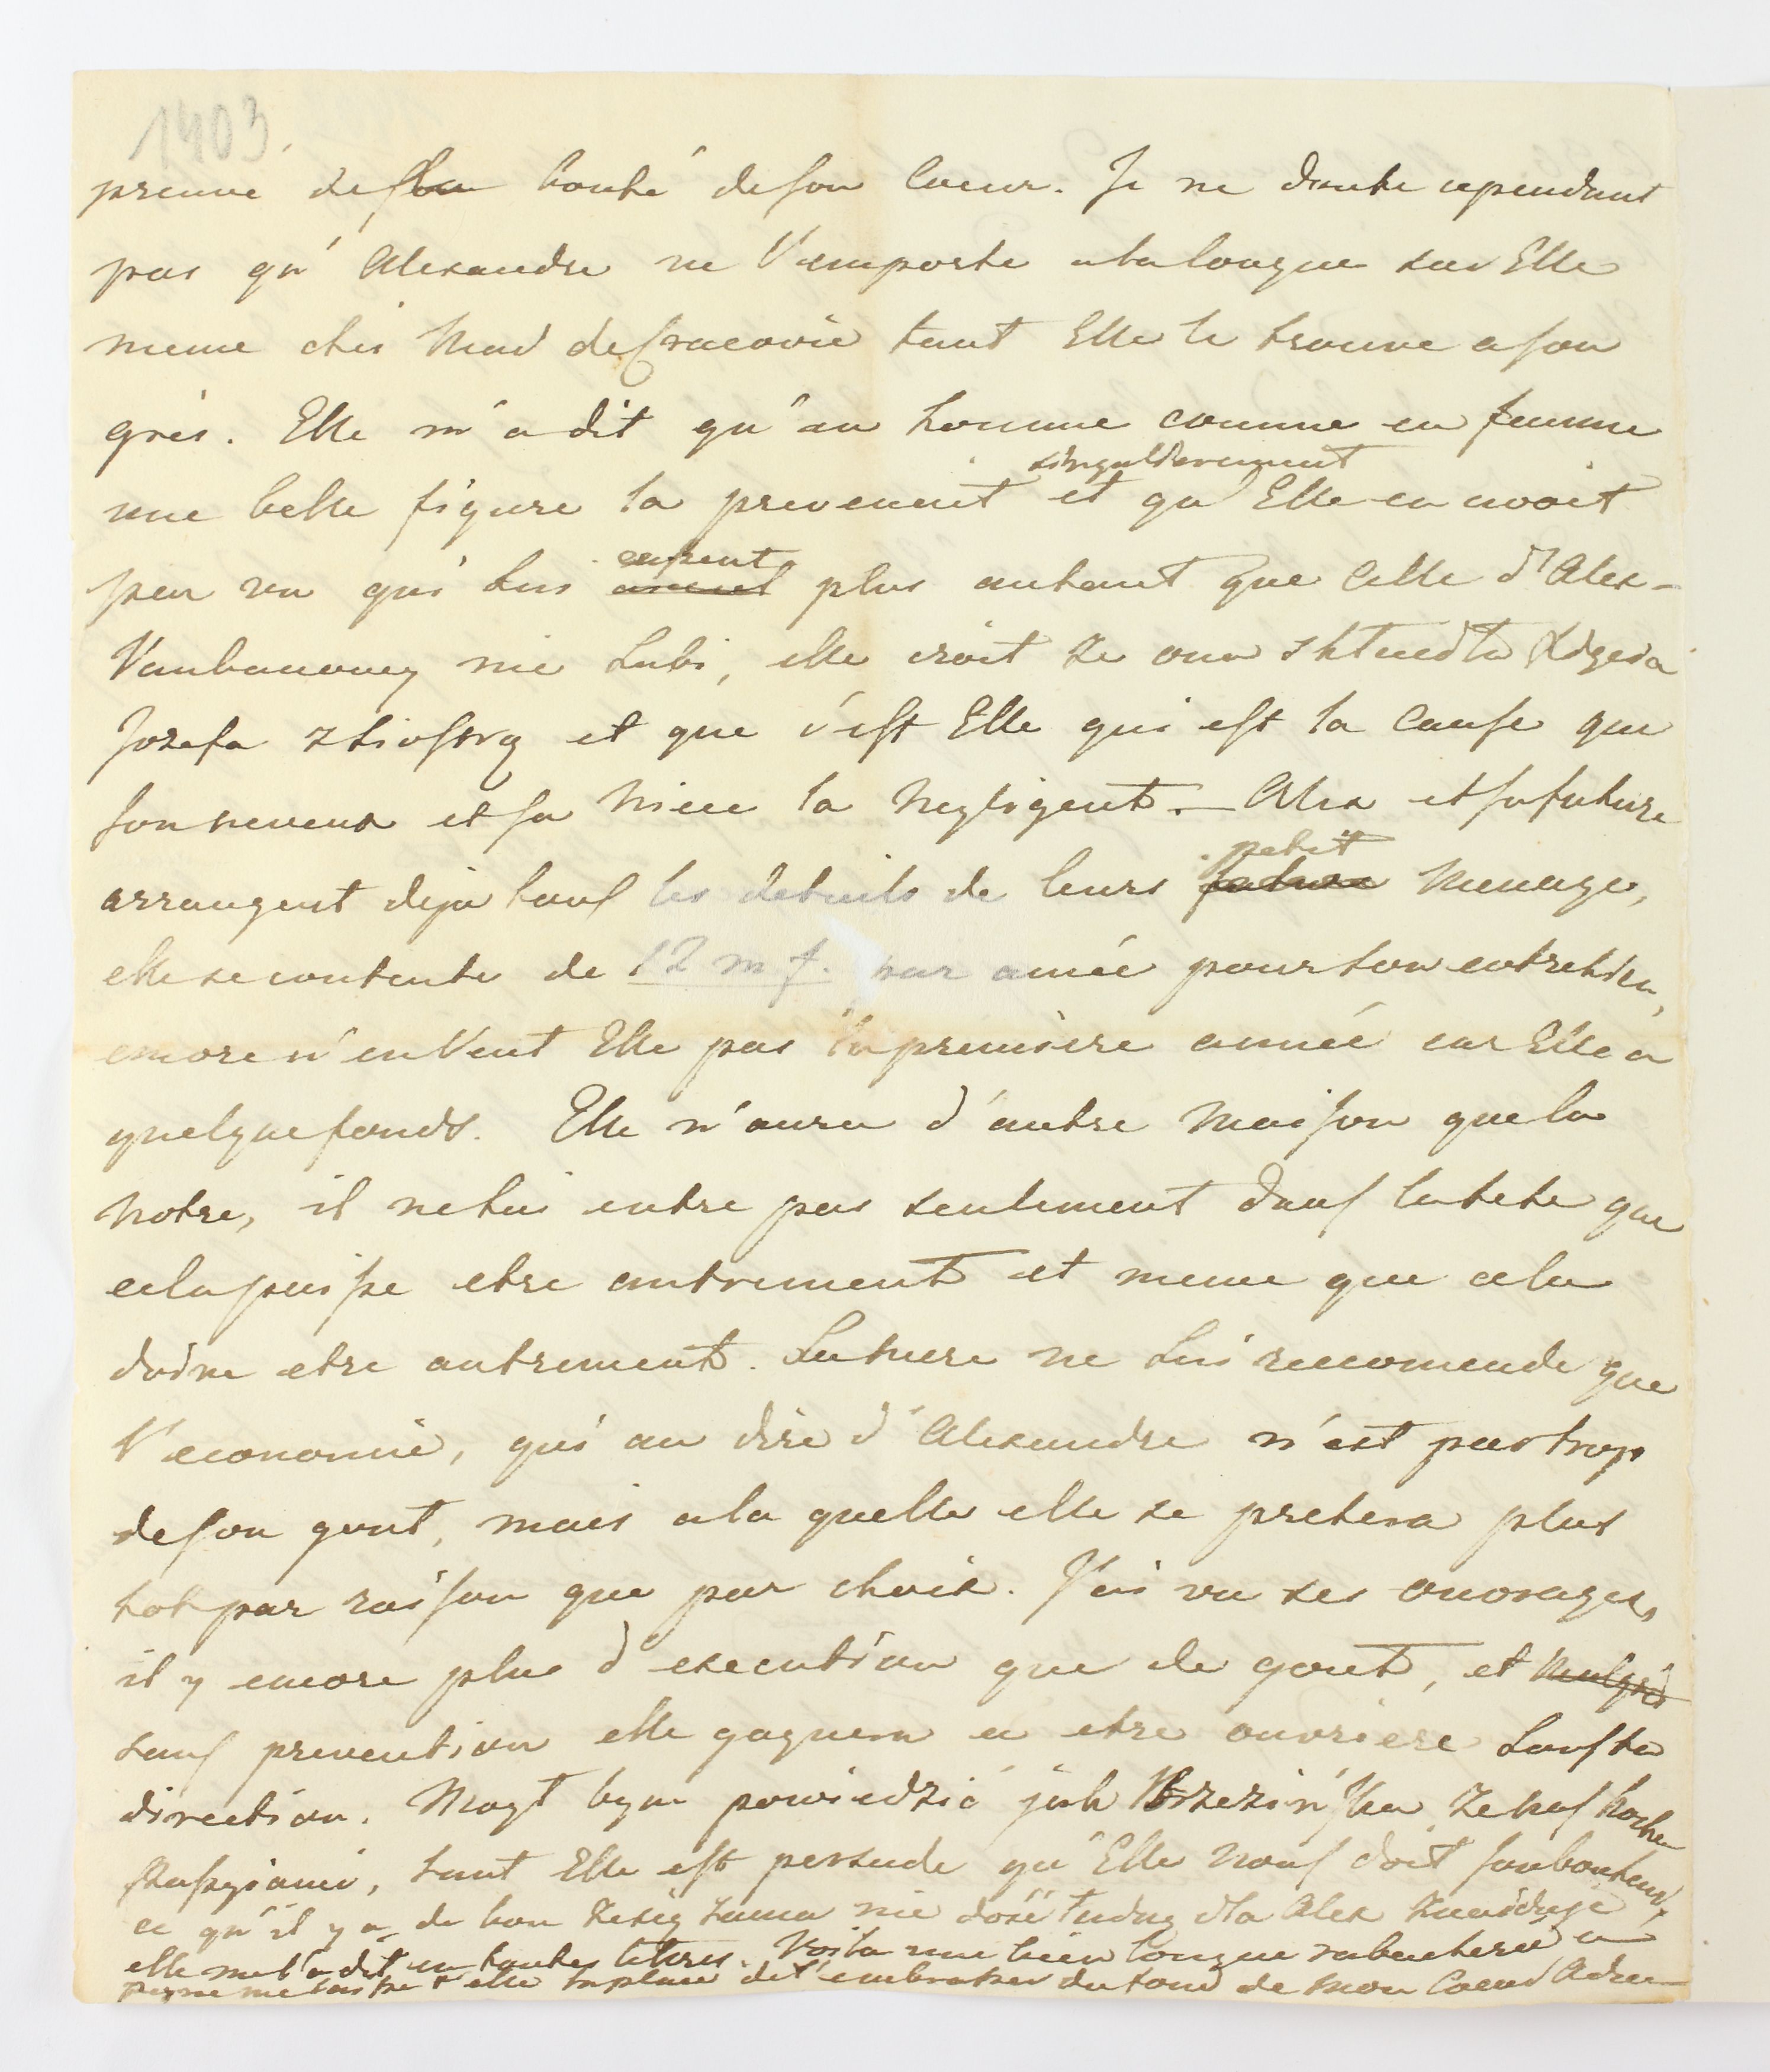 1403.
preuve de la bonté de son Coeur. Je ne doute cependant
pas qu'Alexandre ne l'emporte a la longue sur Elle
meme chés Mad de Cracovie tant Elle le trouve a son
grés. Elle m'a dit qu'en homme comme en femme
singulierement
une belle figure la prevenoit et qu'Elle en avoit
eussent
peu vu qui lui plus autant que celle d'Alex-
nie lubi, elle croit ze ona
Jozefa et que c'est Elle qui est la cause que
son neveux et sa Niece la negligent. — Alex et sa future
petit
arrangent deja tous les details de leurs future Menage,
elle se contente de 12 m f. par année pour son entretien,
encore n'en veut Elle pas la premiere année car Elle a
quelque fonds. Elle n'aura d'autre Maison que la
Notre, il ne lui entre pas seulement dans la tete que
cela puisse etre autrement et meme que cela
doive etre autrement. La mere ne lui reccomende que
l'economie, qui au dire d'Alexandre n'est pas trop
de son gout, mais a la quelle elle se pretera plus
tot par raison que par choix. J'ai vu ses ouvrages,
il y encore plus d'execution que de gout, et Malgré
sans prevention elle gagnera a etre ouvriere sous ta
direction. Mogł bym powiedzić jak Brzezińska, że nas kocha
, tant Elle est persuade qu'Elle nous doit son bonheur,
ce qu'il y a de bon że się sama nie dość ładną dla Alex znajduje
elle me l'a dit en toutes lettres. Voila une bien longue rabacherie a
peine me laisse t'elle la place de t'embrasser du fond de mon Coeur Adieu